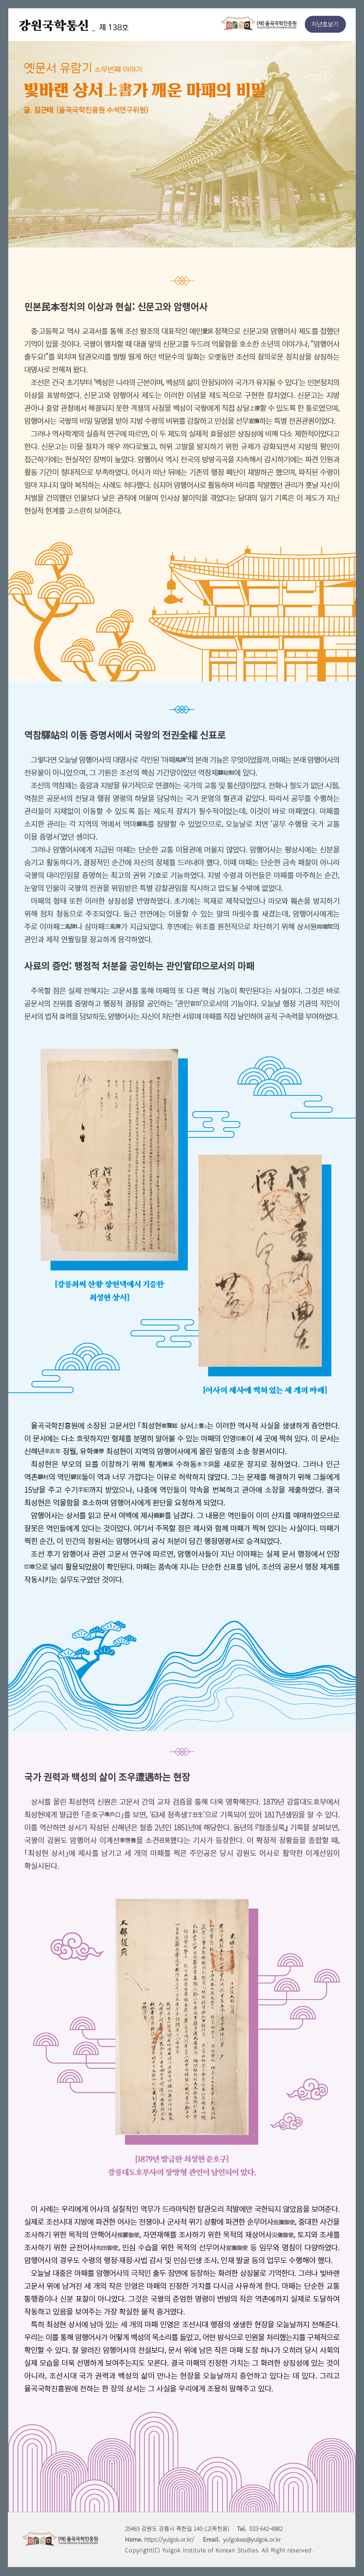 강원국학통신 _ 제 138호
(재)율곡국학진흥원
지난호보기
옛문서 유람기 스무번째 이야기
빛바랜 상서上書가 깨운 마패의 비밀
글. 김근태 (율곡국학진흥원 수석연구위원)
민본民本정치의 이상과 현실: 신문고와 암행어사
중·고등학교 역사 교과서를 통해 조선 왕조의 대표적인 애민愛民 정책으로 신문고와 암행어사 제도를 접했던
기억이 있을 것이다. 국왕이 행차할 때 대궐 앞의 신문고를 두드려 억울함을 호소한 소년의 이야기나, "암행어사
출두요!"를 외치며 탐관오리를 벌벌 떨게 하던 박문수의 일화는 오랫동안 조선의 정의로운 정치상을 상징하는
대명사로 전해져 왔다.
조선은 건국 초기부터 '백성은 나라의 근본이며, 백성의 삶이 안정되어야 국가가 유지될 수 있다'는 민본정치의
이상을 표방하였다. 신문고와 암행어사 제도는 이러한 이념을 제도적으로 구현한 장치였다. 신문고는 지방
관아나 중앙 관청에서 해결되지 못한 격쟁의 사정을 백성이 국왕에게 직접 상달上達할 수 있도록 한 통로였으며,
암행어사는 국왕의 비밀 밀명을 받아 지방 수령의 비위를 감찰하고 민심을 선무宣撫하는 특별 전권관원이었다.
그러나 역사학계의 실증적 연구에 따르면, 이 두 제도의 실제적 효용성은 상징성에 비해 다소 제한적이었다고
한다. 신문고는 이용 절차가 매우 까다로웠고, 허위 고발을 방지하기 위한 규제가 강화되면서 지방의 평민이
접근하기에는 현실적인 장벽이 높았다. 암행어사 역시 전국의 방방곡곡을 지속해서 감시하기에는 파견 인원과
활동 기간이 절대적으로 부족하였다. 어사가 떠난 뒤에는 기존의 행정 폐단이 재발하곤 했으며, 파직된 수령이
얼마 지나지 않아 복직하는 사례도 허다했다. 심지어 암행어사로 활동하며 비리를 적발했던 관리가 훗날 자신이
처벌을 건의했던 인물보다 낮은 관직에 머물며 인사상 불이익을 겪었다는 당대의 일기 기록은 이 제도가 지닌
현실적 한계를 고스란히 보여준다.
역참驛站의 이동 증명서에서 국왕의 전권全權 신표로
그렇다면 오늘날 암행어사의 대명사로 각인된 '마패馬牌'의 본래 기능은 무엇이었을까. 마패는 본래 암행어사의
전유물이 아니었으며, 그 기원은 조선의 핵심 기간망이었던 역참제驛站制에 있다.
조선의 역참제는 중앙과 지방을 유기적으로 연결하는 국가의 교통 및 통신망이었다. 전화나 철도가 없던 시절,
역참은 공문서의 전달과 행정 명령의 하달을 담당하는 국가 운영의 혈관과 같았다. 따라서 공무를 수행하는
관리들이 지체없이 이동할 수 있도록 돕는 제도적 장치가 필수적이었는데, 이것이 바로 마패였다. 마패를
소지한 관리는 각 지역의 역에서 역마驛馬를 징발할 수 있었으므로, 오늘날로 치면 '공무 수행용 국가 교통
이용 증명서'였던 셈이다.
그러나 암행어사에게 지급된 마패는 단순한 교통 이용권에 머물지 않았다. 암행어사는 평상시에는 신분을
숨기고 활동하다가, 결정적인 순간에 자신의 정체를 드러내야 했다. 이때 마패는 단순한 금속 패찰이 아니라
국왕의 대리인임을 증명하는 최고의 권위 기호로 기능하였다. 지방 수령과 아전들은 마패를 마주하는 순간,
눈앞의 인물이 국왕의 전권을 위임받은 특별 감찰관임을 직시하고 압도될 수밖에 없었다.
마패의 형태 또한 이러한 상징성을 반영하였다. 초기에는 목재로 제작되었으나 마모와 훼손을 방지하기
위해 점차 청동으로 주조되었다. 둥근 전면에는 이용할 수 있는 말의 마릿수를 새겼는데, 암행어사에게는
주로 이마패二馬牌나 삼마패三馬牌가 지급되었다. 후면에는 위조를 원천적으로 차단하기 위해 상서원尙瑞院의
관인과 제작 연월일을 정교하게 음각하였다.
사료의 증언: 행정적 처분을 공인하는 관인官印으로서의 마패
주목할 점은 실제 전해지는 고문서를 통해 마패의 또 다른 핵심 기능이 확인된다는 사실이다. 그것은 바로
공문서의 진위를 증명하고 행정적 결정을 공인하는 '관인官印'으로서의 기능이다. 오늘날 행정 기관의 직인이
문서의 법적 효력을 담보하듯, 암행어사는 자신이 처단한 서류에 마패를 직접 날인하여 공적 구속력을 부여하였다.
[강릉최씨 산황 장현댁에서 기증한
최성현 상서]
[어사의 제사에 찍혀 있는 세 개의 마패]
율곡국학진흥원에 소장된 고문서인 「최성현崔聲鉉 상서上書」는 이러한 역사적 사실을 생생하게 증언한다.
이 문서에는 다소 흐릿하지만 형체를 분명히 알아볼 수 있는 마패의 인영印影이 세 곳에 찍혀 있다. 이 문서는
신해년辛亥年 정월, 유학幼學 최성현이 지역의 암행어사에게 올린 일종의 소송 청원서이다.
최성현은 부모의 묘를 이장하기 위해 횡계橫溪 수하동水下洞을 새로운 장지로 정하였다. 그러나 인근
역촌驛村의 역민驛民들이 역과 너무 가깝다는 이유로 허락하지 않았다. 그는 문제를 해결하기 위해 그들에게
15냥을 주고 수기手記까지 받았으나, 나중에 역민들이 약속을 번복하고 관아에 소장을 제출하였다. 결국
최성현은 억울함을 호소하며 암행어사에게 판단을 요청하게 되었다.
암행어사는 상서를 읽고 문서 여백에 제사題辭를 남겼다. 그 내용은 역민들이 이미 산지를 매매하였으므로
잘못은 역민들에게 있다는 것이었다. 여기서 주목할 점은 제사와 함께 마패가 찍혀 있다는 사실이다. 마패가
찍힌 순간, 이 민간의 청원서는 암행어사의 공식 처분이 담긴 행정명령서로 승격되었다.
조선 후기 암행어사 관련 고문서 연구에 따르면, 암행어사들이 지닌 이마패는 실제 문서 행정에서 인장
印章으로 널리 활용되었음이 확인된다. 마패는 품속에 지니는 단순한 신표를 넘어, 조선의 공문서 행정 체계를
작동시키는 실무도구였던 것이다.
국가 권력과 백성의 삶이 조우遭遇하는 현장
상서를 올린 최성현의 신원은 고문서 간의 교차 검증을 통해 더욱 명확해진다. 1879년 강릉대도호부에서
최성현에게 발급한 「준호구準戶口」를 보면, '63세 정축생丁丑生'으로 기록되어 있어 1817년생임을 알 수 있다.
이를 역산하면 상서가 작성된 신해년은 철종 2년인 1851년에 해당한다. 동년의 『철종실록』 기록을 살펴보면,
국왕이 강원도 암행어사 이계선李啓善을 소견召見했다는 기사가 등장한다. 이 확정적 정황들을 종합할 때,
「최성현 상서」에 제사를 남기고 세 개의 마패를 찍은 주인공은 당시 강원도 어사로 활약한 이계선임이
확실시된다.
[1879년 발급한 최성현 준호구]
강릉대도호부사의 장방형 관인이 날인되어 있다.
이 사례는 우리에게 어사의 실질적인 역무가 드라마틱한 탐관오리 적발에만 국한되지 않았음을 보여준다.
실제로 조선시대 지방에 파견한 어사는 전쟁이나 군사적 위기 상황에 파견한 순무어사巡撫御使, 중대한 사건을
조사하기 위한 목적의 안핵어사按覈御使, 자연재해를 조사하기 위한 목적의 재상어사災傷御使, 토지와 조세를
조사하기 위한 균전어사均田御使, 민심 수습을 위한 목적의 선무어사宣撫御使 등 임무와 명칭이 다양하였다.
암행어사의 경우도 수령의 행정·재정·사법 감사 및 민심·민생 조사, 인재 발굴 등의 업무도 수행해야 했다.
오늘날 대중은 마패를 암행어사의 극적인 출두 장면에 등장하는 화려한 상징물로 기억한다. 그러나 빛바랜
고문서 위에 남겨진 세 개의 작은 인영은 마패의 진정한 가치를 다시금 사유하게 한다. 마패는 단순한 교통
통행증이나 신분 표찰이 아니었다. 그것은 국왕의 준엄한 명령이 변방의 작은 역촌에까지 실제로 도달하여
작동하고 있음을 보여주는 가장 확실한 물적 증거였다.
특히 최성현 상서에 남아 있는 세 개의 마패 인영은 조선시대 행정의 생생한 현장을 오늘날까지 전해준다.
우리는 이를 통해 암행어사가 어떻게 백성의 목소리를 들었고, 어떤 방식으로 민원을 처리했는지를 구체적으로
확인할 수 있다. 잘 알려진 암행어사의 전설보다, 문서 위에 남은 작은 마패 도장 하나가 오히려 당시 사회의
실제 모습을 더욱 선명하게 보여주는지도 모른다. 결국 마패의 진정한 가치는 그 화려한 상징성에 있는 것이
아니라, 조선시대 국가 권력과 백성의 삶이 만나는 현장을 오늘날까지 증언하고 있다는 데 있다. 그리고
율곡국학진흥원에 전하는 한 장의 상서는 그 사실을 우리에게 조용히 말해주고 있다.
(재)율곡국학진흥원
25465 강원도 강릉시 죽헌길 140-12(죽헌동) Tel. 033-642-4982
Home. https://yulgok.or.kr/ Email. yulgokee@yulgok.or.kr
Copyright(C) Yulgok Institute of Korean Studies. All Right reserved.